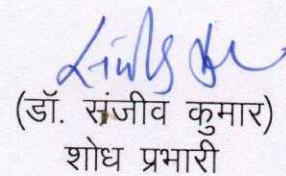 (डॉ. संजीव कुमार)
शोध प्रभारी